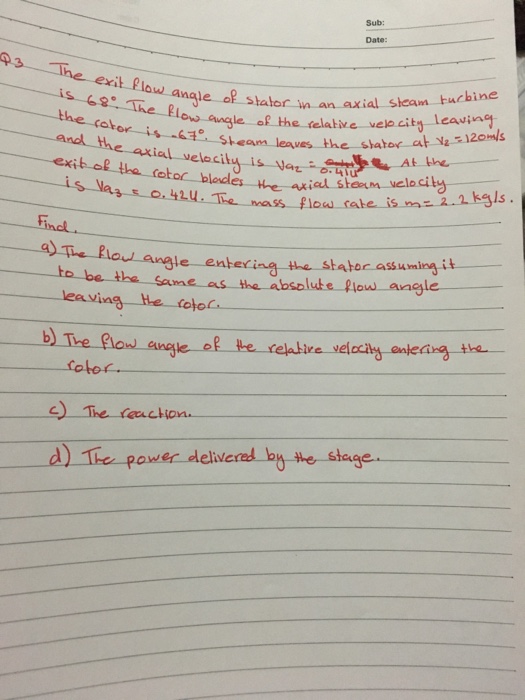 Sub:
Date:
Q3 The exit flow angle of stator in an axial steam turbine
is 68°. The flow angle of the relative velocity leaving
the rotor is -67°. Steam leaves the stator at V2 = 120m/s
and the axial velocity is Va2 = 0.41U At the
exit of the rotor blades the axial steam velocity
is Va3 = 0.42U. The mass flow rate is m = 2.2 kg/s.
Find.
a) The flow angle entering the stator assuming it
to be the same as the absolute flow angle
leaving the rotor.
b) The flow angle of the relative velocity entering the
rotor.
c) The reaction.
d) The power delivered by the stage.